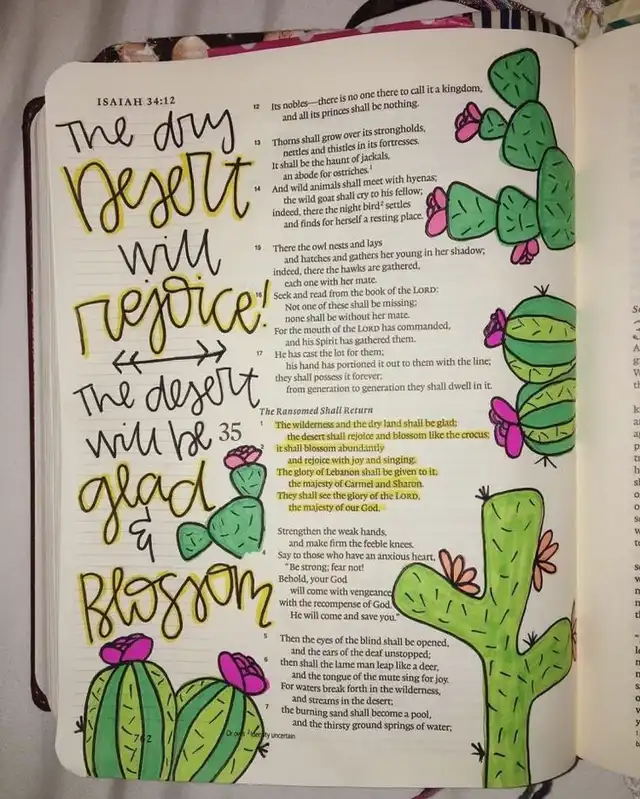 ISAIAH 34:12
The dry
Desert
will
rejoice!
The desert
will be
glad
&
Blossom
12 Its nobles—there is no one there to call it a kingdom,
and all its princes shall be nothing.
13 Thorns shall grow over its strongholds,
nettles and thistles in its fortresses.
It shall be the haunt of jackals,
an abode for ostriches.¹
14 And wild animals shall meet with hyenas;
the wild goat shall cry to his fellow;
indeed, there the night bird² settles
and finds for herself a resting place.
15 There the owl nests and lays
and hatches and gathers her young in her shadow;
indeed, there the hawks are gathered,
each one with her mate.
16 Seek and read from the book of the LORD:
Not one of these shall be missing;
none shall be without her mate.
For the mouth of the LORD has commanded,
and his Spirit has gathered them.
17 He has cast the lot for them;
his hand has portioned it out to them with the line;
they shall possess it forever;
from generation to generation they shall dwell in it.
The Ransomed Shall Return
35 1 The wilderness and the dry land shall be glad;
the desert shall rejoice and blossom like the crocus;
2 it shall blossom abundantly
and rejoice with joy and singing.
The glory of Lebanon shall be given to it,
the majesty of Carmel and Sharon.
They shall see the glory of the LORD,
the majesty of our God.
Strengthen the weak hands,
and make firm the feeble knees.
4 Say to those who have an anxious heart,
"Be strong; fear not!
Behold, your God
will come with vengeance,
with the recompense of God.
He will come and save you."
5 Then the eyes of the blind shall be opened,
and the ears of the deaf unstopped;
6 then shall the lame man leap like a deer,
and the tongue of the mute sing for joy.
For waters break forth in the wilderness,
and streams in the desert;
7 the burning sand shall become a pool,
and the thirsty ground springs of water;
762
Or owls ² Identity uncertain